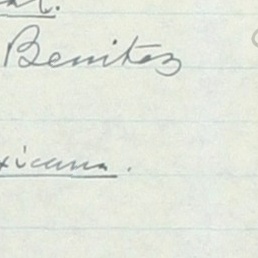 Benitez
xicana.